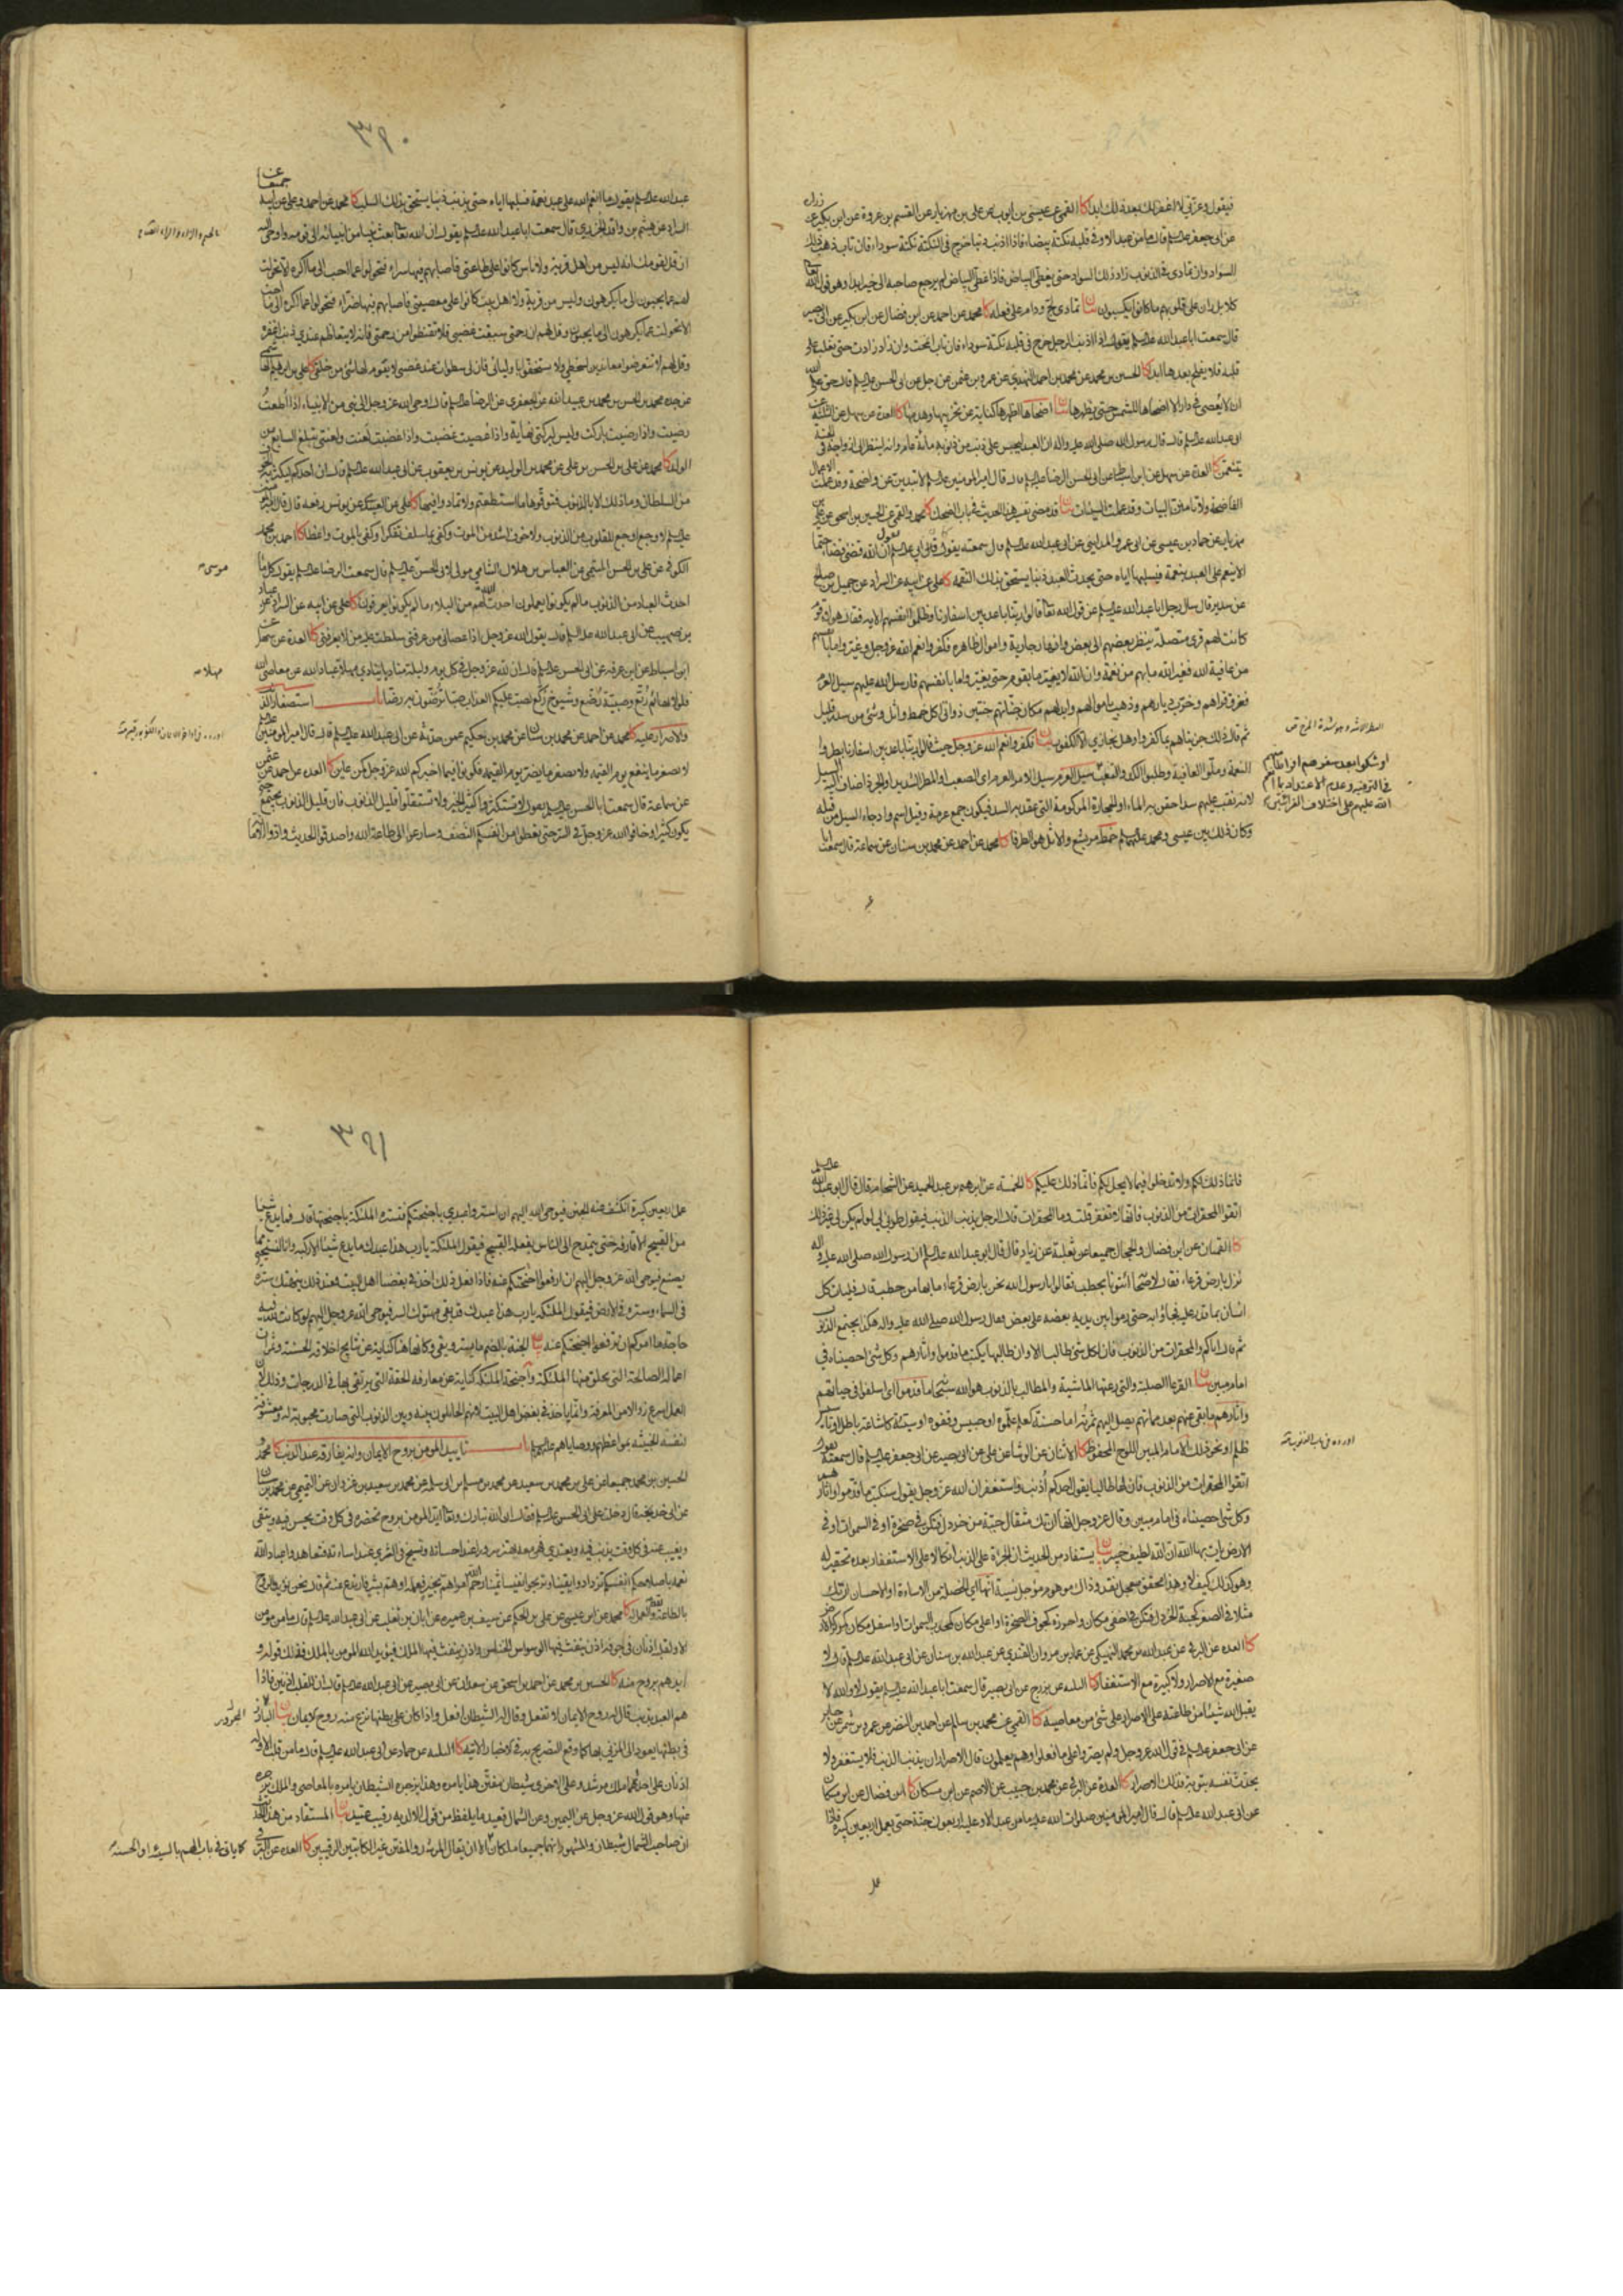 فيقول وعزتي لا اغفر لك بعد ذلك ابدا كا القمي عن عيسى بن ايوب عن علي بن مهزيار عن القسم بن عروة عن ابن بكير عن زرارة
عن ابي جعفر عليه السلام قال ما من عبد الا وفي قلبه نكتة بيضاء فاذا اذنب ذنبا خرج في النكتة نكتة سوداء فان تاب ذهب ذلك
السواد وان تمادى في الذنوب زاد ذلك السواد حتى يغطي البياض فاذا غطى البياض لم يرجع صاحبه الى خير ابدا وهو قول الله تعالى
كلا بل ران على قلوبهم ما كانوا يكسبون بيان تمادى لج ودام على فعله كا محمد عن احمد عن ابن فضال عن ابن بكير عن ابي بصير
قال سمعت ابا عبد الله عليه السلام يقول اذا اذنب الرجل خرج في قلبه نكتة سوداء فان تاب انمحت وان زاد زادت حتى تغلب على
قلبه فلا يفلح بعدها ابدا كا الحسين بن محمد عن محمد بن احمد النهدي عن عمرو بن عثمن عن رجل عن ابي الحسن عليه السلام قال حق على الله
ان لا يعصى في دار الا اضحاها للشمس حتى تطهرها بيان اضحاها اظهرها كناية عن تخريبها وهدمها كا العدة عن سهل عن الثلثة عن
ابي عبد الله عليه السلام قال قال رسول الله صلى الله عليه واله ان العبد ليحبس على ذنب من ذنوبه مائة عام وانه لينظر الى ازواجه في الجنة
يتنعمن كا العدة عن سهل عن ابن اسباط عن ابي الحسن الرضا عليه السلام قال قال امير المؤمنين عليه السلام لا تبدين عن واضحة وقد عملت الاعمال
الفاضحة ولا تامن البيات وقد عملت السيئات بيان قد مضى تفسير هذا الحديث في باب الضحك كا محمد والقمي عن الحسين بن اسحق عن علي بن
مهزيار عن حماد بن عيسى عن ابي عمرو المدايني عن ابي عبد الله عليه السلام قال سمعته يقول كان ابي عليه السلام يقول ان الله قضى قضاء حتما
الا ينعم على العبد بنعمة فيسلبها اياه حتى يحدث العبد ذنبا يستحق بذلك النقمة كا علي عن ابيه عن السراد عن جميل بن صالح
عن سدير قال سال رجل ابا عبد الله عليه السلام عن قول الله تعالى قالوا ربنا باعد بين اسفارنا وظلموا انفسهم الايه فقال هؤلاء قوم
كانت لهم قرى متصلة ينظر بعضهم الى بعض وانهار جارية واموال ظاهره فكفروا نعم الله عز وجل وغيروا ما بانفسهم
من عافية الله فغير الله ما بهم من نعمة وان الله لا يغير ما بقوم حتى يغيروا ما بانفسهم فارسل الله عليهم سيل العرم
فغرق قراهم وخرب ديارهم وذهب باموالهم وابدلهم مكان جناتهم جنتين ذواتى اكل خمط واثل وشئ من سدر قليل
ثم قال ذلك جزيناهم بما كفروا وهل نجازي الا الكفور بيان فكفروا نعم الله عز وجل حيث قالوا ربنا باعد بين اسفارنا بطروا
النعمة وملوا العافية وطلبوا الكد والتعب سيل العرم سيل الامر العرم اي الصعب او المطر الشديد او الجرذ اضاف اليه السيل
لانه نقب عليهم سدا حقن به الماء او الحجارة المركومة التي عقد بها السد فيكون جمع عرمة وقيل اسم واد جاء السيل من قبله
وكان ذلك بين عيسى ومحمد عليهما السلام خمط مر بشع والاثل هو الطرفا كا محمد عن احمد عن محمد بن سنان عن سماعة قال سمعت ابا
او شكوا بعد سفرهم افراطا منهم
في الترفيه وعدم الاعتداد بما انعم
الله عليهم على اختلاف القرائتين
٣٩٠
عبد الله عليه السلام يقول ما انعم الله على عبد نعمة فسلبها اياه حتى يذنب ذنبا يستحق بذلك السلب كا محمد عن احمد وعلي عن ابيه جميعا عن
السراد عن هيثم بن واقد الجزري قال سمعت ابا عبد الله عليه السلام يقول ان الله تعالى بعث نبيا من انبيائه الى قومه واوحى اليه
ان قل لقومك انه ليس من اهل قرية ولا ناس كانوا على طاعتي فاصابهم فيها سراء فتحولوا عما احب الى ما اكره الا تحولت
لهم عما يحبون الى ما يكرهون وليس من قرية ولا اهل بيت كانوا على معصيتي فاصابهم فيها ضراء فتحولوا عما اكره الى ما احب
الا تحولت لهم عما يكرهون الى ما يحبون وقل لهم ان رحمتي سبقت غضبي فلا تقنطوا من رحمتي فانه لا يتعاظم عندي ذنب اغفره
وقل لهم لا يتعرضوا معاندين لسخطي ولا يستخفوا باوليائي فان لي سطوات عند غضبي لا يقوم لها شئ من خلقي كا علي بن ابراهيم الهاشمي
عن جده محمد بن الحسن بن محمد بن عبيد الله عن الجعفري عن الرضا عليه السلام قال اوحى الله عز وجل الى نبي من الانبياء اذا اطعت
رضيت واذا رضيت باركت وليس لبركتي نهاية واذا عصيت غضبت واذا غضبت لعنت ولعنتي تبلغ السابع من
الولد كا محمد عن علي بن الحسن بن علي عن محمد بن الوليد عن يونس بن يعقوب عن ابي عبد الله عليه السلام قال ان احدكم ليكثر به الخوف
من السلطان وما ذلك الا بالذنوب فتوقوها ما استطعتم ولا تمادوا فيها كا علي عن العبيدي عن يونس رفعه قال قال امير المؤمنين
عليه السلام لا وجع اوجع للقلوب من الذنوب ولا خوف اشد من الموت وكفى بما سلف تفكرا وكفى بالموت واعظا كا احمد بن محمد
الكوفي عن علي بن الحسن الميثمي عن العباس بن هلال الشامي مولى لابي الحسن عليه السلام قال سمعت الرضا عليه السلام يقول كلما
احدث العباد من الذنوب ما لم يكونوا يعملون احدث الله لهم من البلاء ما لم يكونوا يعرفون كا علي عن ابيه عن السراد عن عباد
بن صهيب عن ابي عبد الله عليه السلام قال يقول الله عز وجل اذا عصاني من عرفني سلطت عليه من لا يعرفني كا العدة عن سهل عن
ابن اسباط عن ابن عرفه عن ابي الحسن عليه السلام قال ان لله عز وجل في كل يوم وليلة مناديا ينادي مهلا مهلا عباد الله عن معاصي الله
فلولا بهائم رتع وصبية رضع وشيوخ ركع لصب عليكم العذاب صبا ترضون به رضا باب استصغار الذنب
والاصرار عليه كا محمد عن احمد عن محمد بن سنان عن محمد بن حكيم عمن حدثه عن ابي عبد الله عليه السلام قال قال امير المؤمنين عليه السلام
لا يصغر ما ينفع يوم القيمه ولا يصغر ما يضر يوم القيمه فكونوا فيما اخبركم الله عز وجل كمن عاين كا العدة عن احمد عن عثمن
عن سماعة قال سمعت ابا الحسن عليه السلام يقول لا تستكثروا كثير الخير ولا تستقلوا قليل الذنوب فان قليل الذنوب يجتمع حتى
يكون كثيرا وخافوا الله عز وجل في السر حتى تعطوا من انفسكم النصف وسارعوا الى طاعة الله واصدقوا الحديث وادوا الامانة
موسى
مهلا
فانما ذلك لكم ولا تدخلوا فيما لا يحل لكم فانما ذلك عليكم كا الخمسة عن ابراهيم بن عبد الحميد عن الشحام قال قال ابو عبد الله عليه السلام
اتقوا المحقرات من الذنوب فانها لا تغفر قلت وما المحقرات قال الرجل يذنب الذنب فيقول طوبى لي لو لم يكن لي غير ذلك
كا القميان عن ابن فضال والحجال جميعا عن ثعلبة عن زياد قال قال ابو عبد الله عليه السلام ان رسول الله صلى الله عليه واله
نزل بارض قرعاء فقال لاصحابه ائتونا بحطب فقالوا يا رسول الله نحن بارض قرعاء ما بها من حطب قال فليات كل
انسان بما قدر عليه فجاؤا به حتى رموا بين يديه بعضه على بعض فقال رسول الله صلى الله عليه واله هكذا يجتمع الذنوب
ثم قال اياكم والمحقرات من الذنوب فان لكل شئ طالبا الا وان طالبها يكتب ما قدموا واثارهم وكل شئ احصيناه في
امام مبين بيان القرعا الصلبة والتي رعتها الماشية والمطالب بالذنوب هو الله سبحانه ما قدموا اي اسلفوا في حياتهم
واثارهم ما بقي عنهم بعد مماتهم يصل اليهم ثمرته اما حسنة كعلم علموه او حبيس وقفوه او سيئة كاشاعة باطل او تاسيس
ظلم او نحو ذلك الامام المبين اللوح المحفوظ كا الاثنان عن الوشا عن علي عن ابي بصير عن ابي جعفر عليه السلام قال سمعته يقول
اتقوا المحقرات من الذنوب فان لها طالبا يقول احدكم اذنب واستغفر ان الله عز وجل يقول سنكتب ما قدموا واثارهم
وكل شئ احصيناه في امام مبين وقال عز وجل انها ان تك مثقال حبة من خردل فتكن في صخرة او في السموات او في
الارض يات بها الله ان الله لطيف خبير بيان يستفاد من الحديث ان الجراة على الذنب اتكالا على الاستغفار بعده تحقير له
وهو كذلك كيف لا وهذا محقق معجل نقد وذاك موهوم مؤجل نسية انها اي الخصلة من الاساءة او الاحسان ان تك
مثلا في الصغر كحبة الخردل فتكن في اخفى مكان واحرزه كجوف الصخرة او اعلى مكان كمحدب السموات او اسفل مكان كمركز الارض
كا العدة عن البرقي عن عبد الله بن محمد النهيكي عن عمار بن مروان القندي عن عبد الله بن سنان عن ابي عبد الله عليه السلام قال لا
صغيرة مع الاصرار ولا كبيرة مع الاستغفار كا الثلثه عن بزرج عن ابي بصير قال سمعت ابا عبد الله عليه السلام يقول لا والله لا
يقبل الله شيئا من طاعته على الاصرار على شئ من معاصيه كا القمي عن محمد بن سالم عن احمد بن النضر عن عمرو بن شمر عن جابر
عن ابي جعفر عليه السلام في قول الله عز وجل ولم يصروا على ما فعلوا وهم يعلمون قال الاصرار ان يذنب الذنب فلا يستغفر ولا
يحدث نفسه بتوبة فذلك الاصرار كا العدة عن البرقي عن محمد بن حبيب عن الاصم عن ابن مسكان كا ابن فضال عن ابن مسكان
عن ابي عبد الله عليه السلام قال قال امير المؤمنين صلوات الله عليه ما من عبد الا وعليه اربعون جنة حتى يعمل اربعين كبيرة فاذا
٣٩١
عمل اربعين كبيرة انكشفت عنه الجنن فيوحي الله اليهم ان استروا عبدي باجنحتكم فتستره الملئكة باجنحتها قال فما يدع شيئا
من القبيح الا قارفه حتى يتمدح الى الناس بفعله القبيح فيقول الملئكة يا رب هذا عبدك ما يدع شيئا الا ركبه وانا لنستحيي مما
يصنع فيوحي الله عز وجل اليهم ان ارفعوا اجنحتكم عنه فاذا فعل ذلك اخذ في بغضنا اهل البيت فعند ذلك ينهتك ستره
في السماء وستره في الارض فيقول الملئكة يا رب هذا عبدك قد بقي مهتوك الستر فيوحي الله عز وجل اليهم لو كانت لله فيه
حاجة ما امركم ان ترفعوا اجنحتكم عنه بيان الجنة بالضم ما يستر ويقي وكانها هنا كناية عن نتايج اخلاقه الحسنة وثمرات
اعماله الصالحة التي يخلق منها الملئكة واجنحة الملئكة كناية عن معارفه الحقة التي يرتقي بها في الدرجات وذلك لان
العمل اسرع زوالا من المعرفة وانما ياخذ في بغض اهل البيت لانهم الحائلون بينه وبين الذنوب التي صارت محبوبة له ومعشوقة
لنفسه الخبيثة بمواعظهم ووصاياهم عليهم السلام باب تاييد المؤمن بروح الايمان وانه يفارقه عند الذنب كا محمد
الحسين بن محمد جميعا عن علي بن محمد بن سعيد عن محمد بن مسلم بن ابي سلمة عن محمد بن سعيد بن غزوان عن التميمي عن محمد بن سنان
عن ابي خديجة قال دخلت على ابي الحسن عليه السلام فقال لي ان الله تبارك وتعالى ايد المؤمن بروح تحضره في كل وقت يحسن فيه ويتقي
ويغيب عنه في كل وقت يذنب فيه ويعتدي فهي معه تهتز سرورا عند احسانه وتسيخ في الثرى عند اساءته فتعاهدوا عباد الله
نعمه باصلاحكم انفسكم تزدادوا يقينا وتربحوا نفيسا ثمينا رحم الله امرا هم بخير فعمله او هم بشر فارتدع عنه ثم قال نحن نؤيد الروح
بالطاعة لله والعمل له كا محمد عن ابن عيسى عن علي بن الحكم عن سيف بن عميره عن ابان بن تغلب عن ابي عبد الله عليه السلام قال ما من مؤمن
الا ولقلبه اذنان في جوفه اذن ينفث فيها الوسواس الخناس واذن ينفث فيها الملك فيؤيد الله المؤمن بالملك فذلك قوله و
ايدهم بروح منه كا الحسين بن محمد عن احمد بن اسحق عن سعدان عن ابي بصير عن ابي عبد الله عليه السلام قال ان للقلب اذنين فاذا
هم العبد بذنب قال له روح الايمان لا تفعل وقال له الشيطان افعل واذا كان على بطنها نزع منه روح الايمان بيان البارز المجرور
في بطنها يعود الى المزني بها كما وقع التصريح به في الاخبار الاتيه كا الثلثه عن حماد عن ابي عبد الله عليه السلام قال ما من قلب الا وله
اذنان على احدهما ملك مرشد وعلى الاخرى شيطان مفتن هذا يامره وهذا يزجره الشيطان يامره بالمعاصي والملك يزجره
عنها وهو قول الله عز وجل عن اليمين وعن الشمال قعيد ما يلفظ من قول الا لديه رقيب عتيد بيان المستفاد من هذا الحديث
ان صاحب الشمال شيطان والمشهور انهما جميعا ملكان الا ان يقال المرشد والمفتن غير الكاتبين الرقيبين كا العدة عن البرقي
كما ياتي في باب الهم بالسيئة او الحسنة